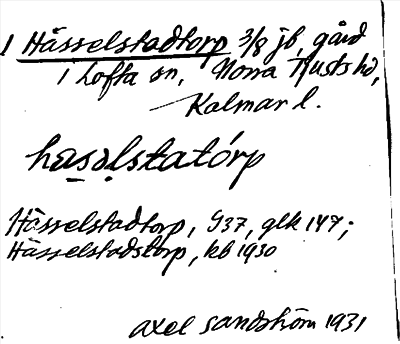 1 Hässelstadtorp 3/8 jb, gård
i Lofta sn, Norra Tjusts hd,
Kalmar l.
hæsəlstatórp
Hässelstadtorp, G37, glk 147;
Hässelstadstorp, kb 1930
Axel Sandström 1931